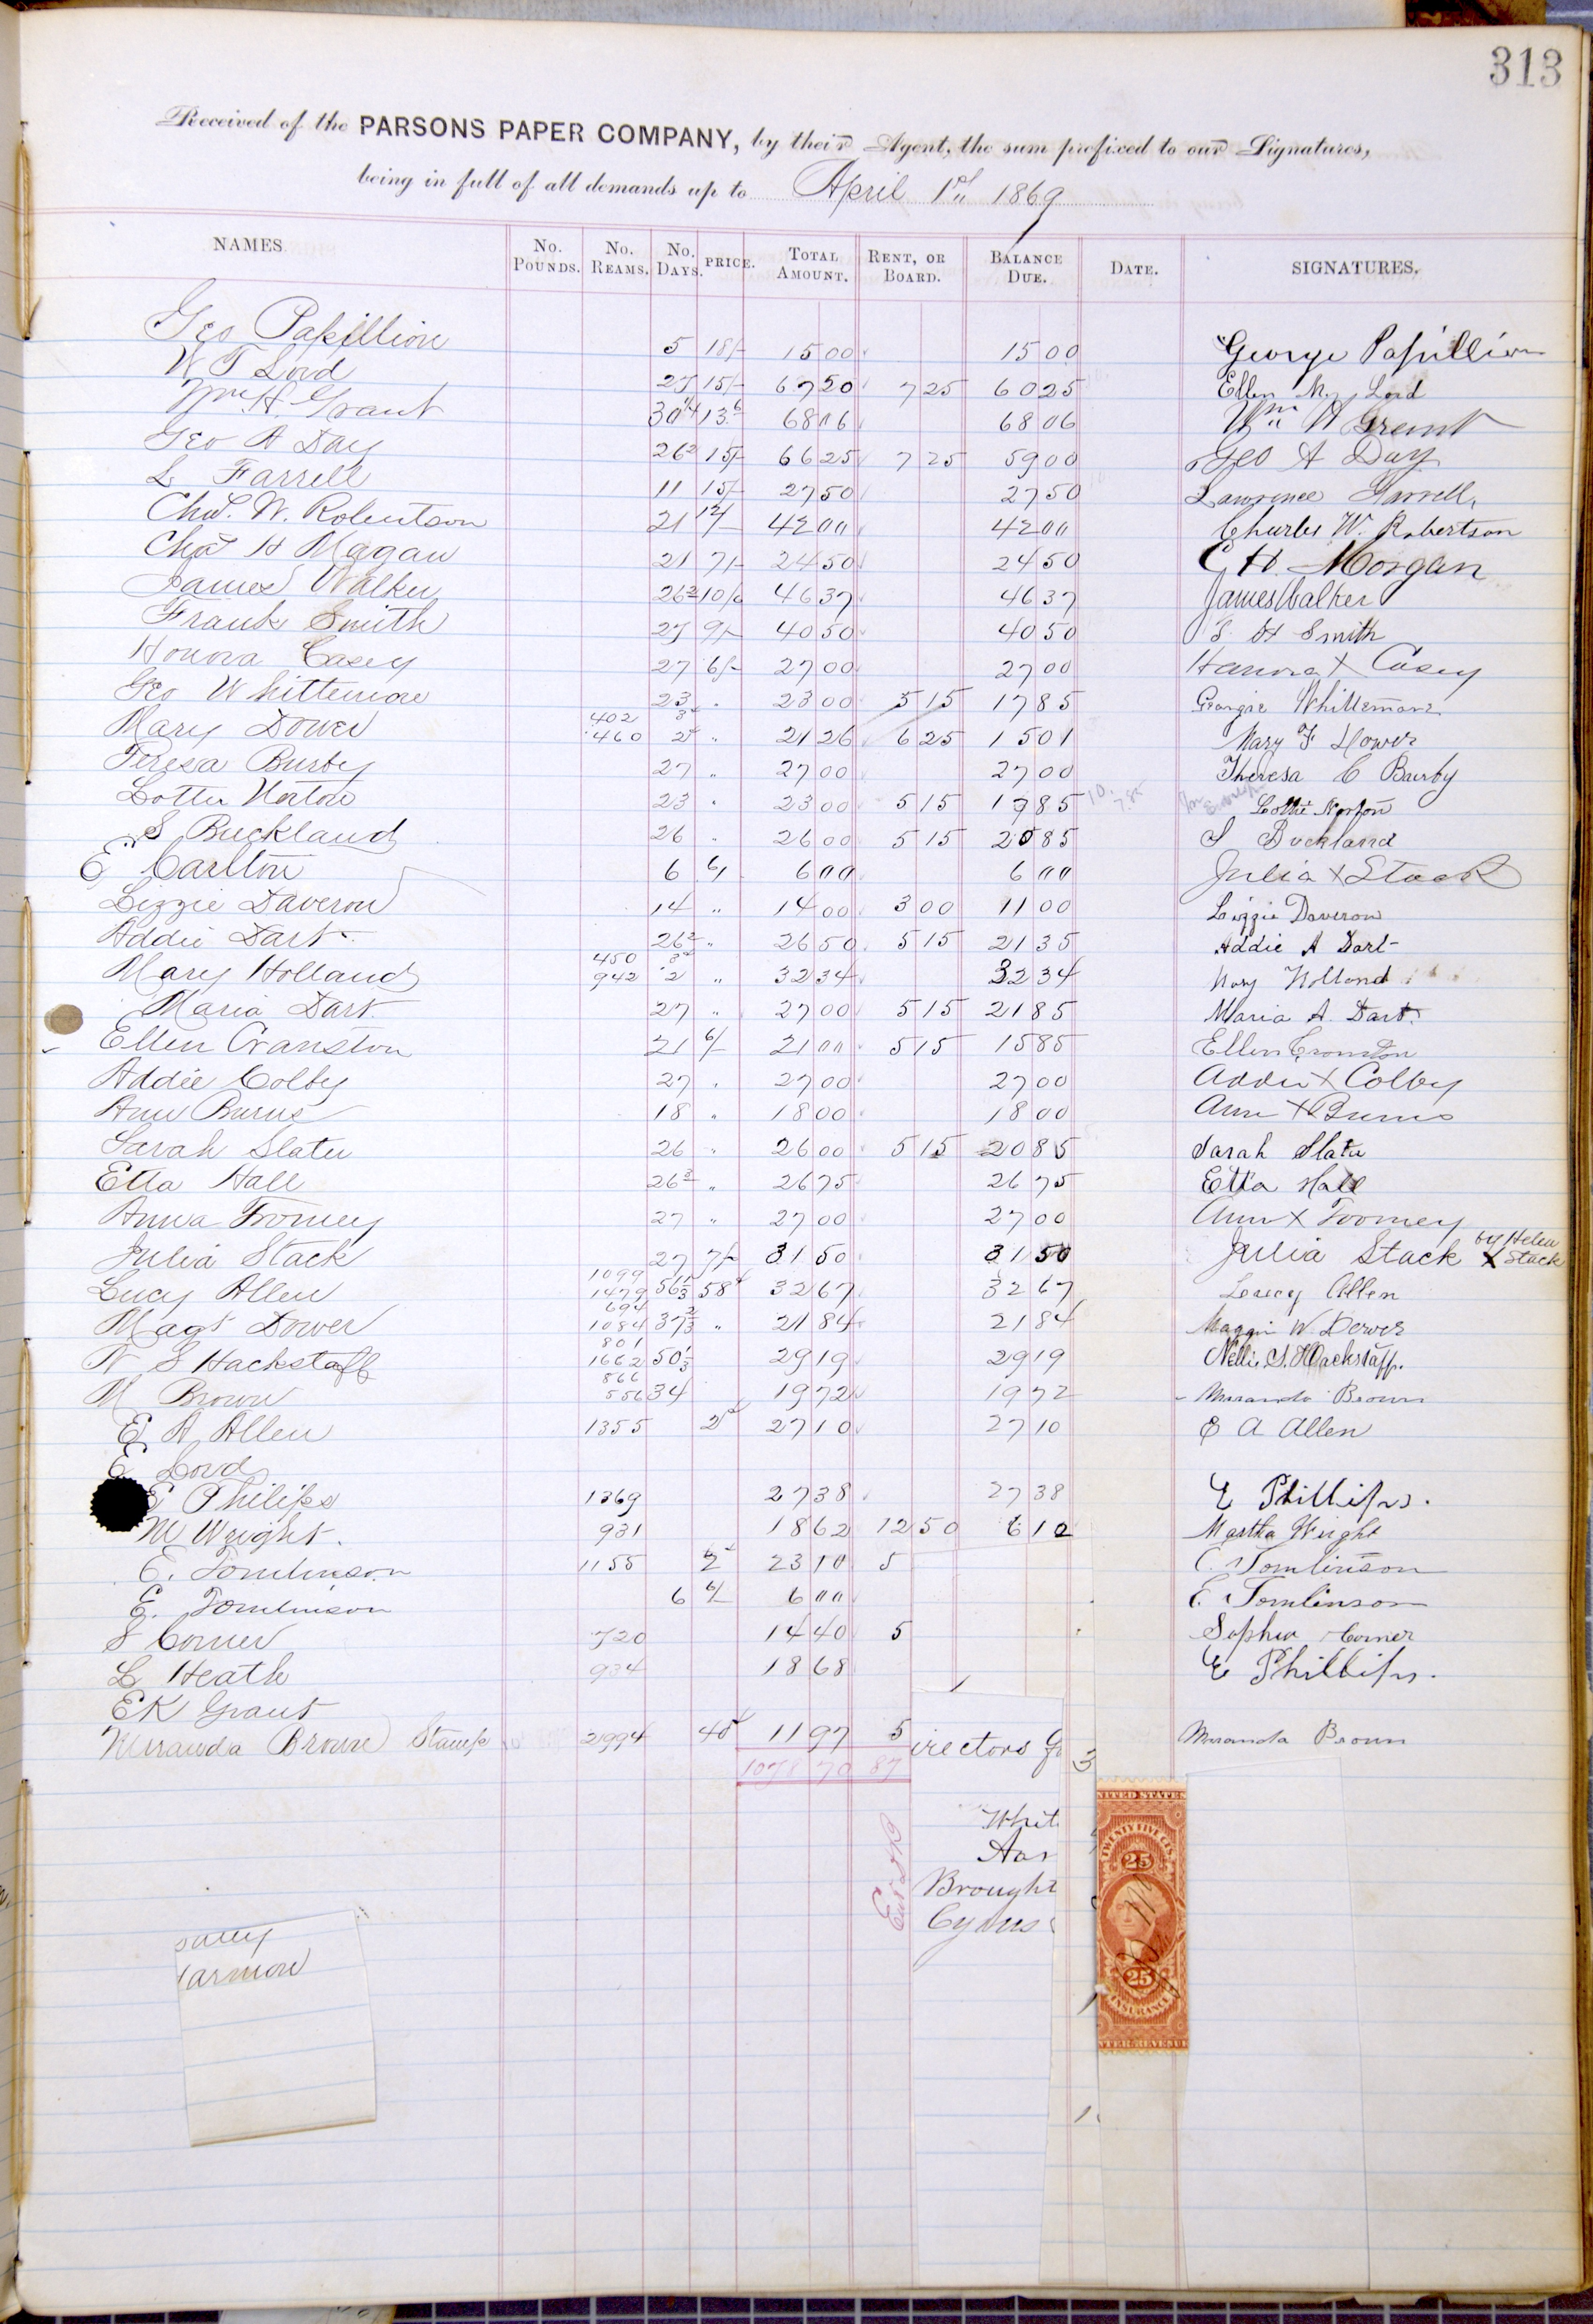 313
Received of the PARSONS PAPER COMPANY, by their Agent, the sum prefixed to our Signatures,
being in full of all demands up to April 1st 1869
NAMES No. POUNDS. No. REAMS. No. DAYS. PRICE. TOTAL AMOUNT. RENT, OR BOARD. BALANCE DUE. DATE. SIGNATURES.
Geo Papillion 5 18/- 15 00 15 00 George Papillion
W T Lord 27 15/- 67 50 7 25 60 25 Ellen M. Lord
Wm H. Grant 30 1/4 13 6 68 06 68 06 Wm H Grant
Geo A Day 26 2 15/- 66 25 7 25 59 00 Geo A Day
L Farrell 11 15/- 27 50 27 50 Lawrence Farrell
Chas. W. Robertson 21 12/- 42 00 42 00 Charles W. Robertson
Chas H Magan 21 7/- 24 50 24 50 C. H. Morgan
James Walker 26 2 10/6 46 37 46 37 James Walker
Frank Smith 27 9/- 40 50 40 50 S. H Smith
Honora Casey 27 6/- 27 00 27 00 Hanora X Casey
Geo Whittemore 23 " 23 00 5 15 17 85 Georgie Whittemore
Mary Dower 402 3 460 2 " 21 26 6 25 15 01 Mary F Dower
Teresa Burby 27 " 27 00 27 00 Theresa C Burby
Lottie Norton 23 " 23 00 5 15 17 85 10. 7.85 Lottie Norton
S Buckland 26 " 26 00 5 15 20 85 S Buckland
E Carlton 6 6/ 6 00 6 00 Julia X Stack
Lizzie Daveron 14 " 14 00 3 00 11 00 Lizzie Daveron
Addie Dart 26 2 " 26 50 5 15 21 35 Addie A Dart
Mary Holland 450 3 942 2 " 32 34 32 34 Mary Holland
Maria Dart 27 " 27 00 5 15 21 85 Maria A. Dart.
Ellen Cranston 21 6/- 21 00 5 15 15 85 Ellen Cranston
Addie Colby 27 " 27 00 27 00 Addie X Colby
Ann Burns 18 " 18 00 18 00 Ann X Burns
Sarah Slater 26 " 26 00 5 15 20 85 Sarah Slater
Etta Hall 26 3 " 26 75 26 75 Etta Hall
Anna Tromey 27 " 27 00 27 00 Ann X Toomey
Julia Stack 27 7/- 31 50 31 50 Julia Stack by Helen X Stack
Lucy Allen 1099 1479 56 1/3 58 32 67 32 67 Lucy Allen
Magt Dower 694 1084 37 2/3 " 21 84 21 84 Maggie W. Dower
N S Hackstaff 801 1662 50 1/3 29 19 29 19 Nellie S. Hackstaff.
M Brown 866 556 34 19 72 19 72 Miranda Brown
E A Allen 1355 2 27 10 27 10 E A Allen
E Lord
E Philips 1369 27 38 27 38 E Phillips.
M Wright. 931 18 62 12 50 6 12 Martha Wright
E. Tomlinson 1155 2 23 10 5 E. Tomlinson
E. Tomlinson 6 6/- 6 00 E. Tomlinson
S Corner 720 14 40 5 Sophia Corner
L Heath 934 18 68 E Phillips.
EK Grant
Miranda Brown Stamp 2994 40 11 97 5 irectors 3 Miranda Brown
1078 70 87
Whit
Aar
Brought
Cyrus
UNITED STATES
TWENTY FIVE CTS.
25
25
INSURANCE
INTER. REVENUE
armon